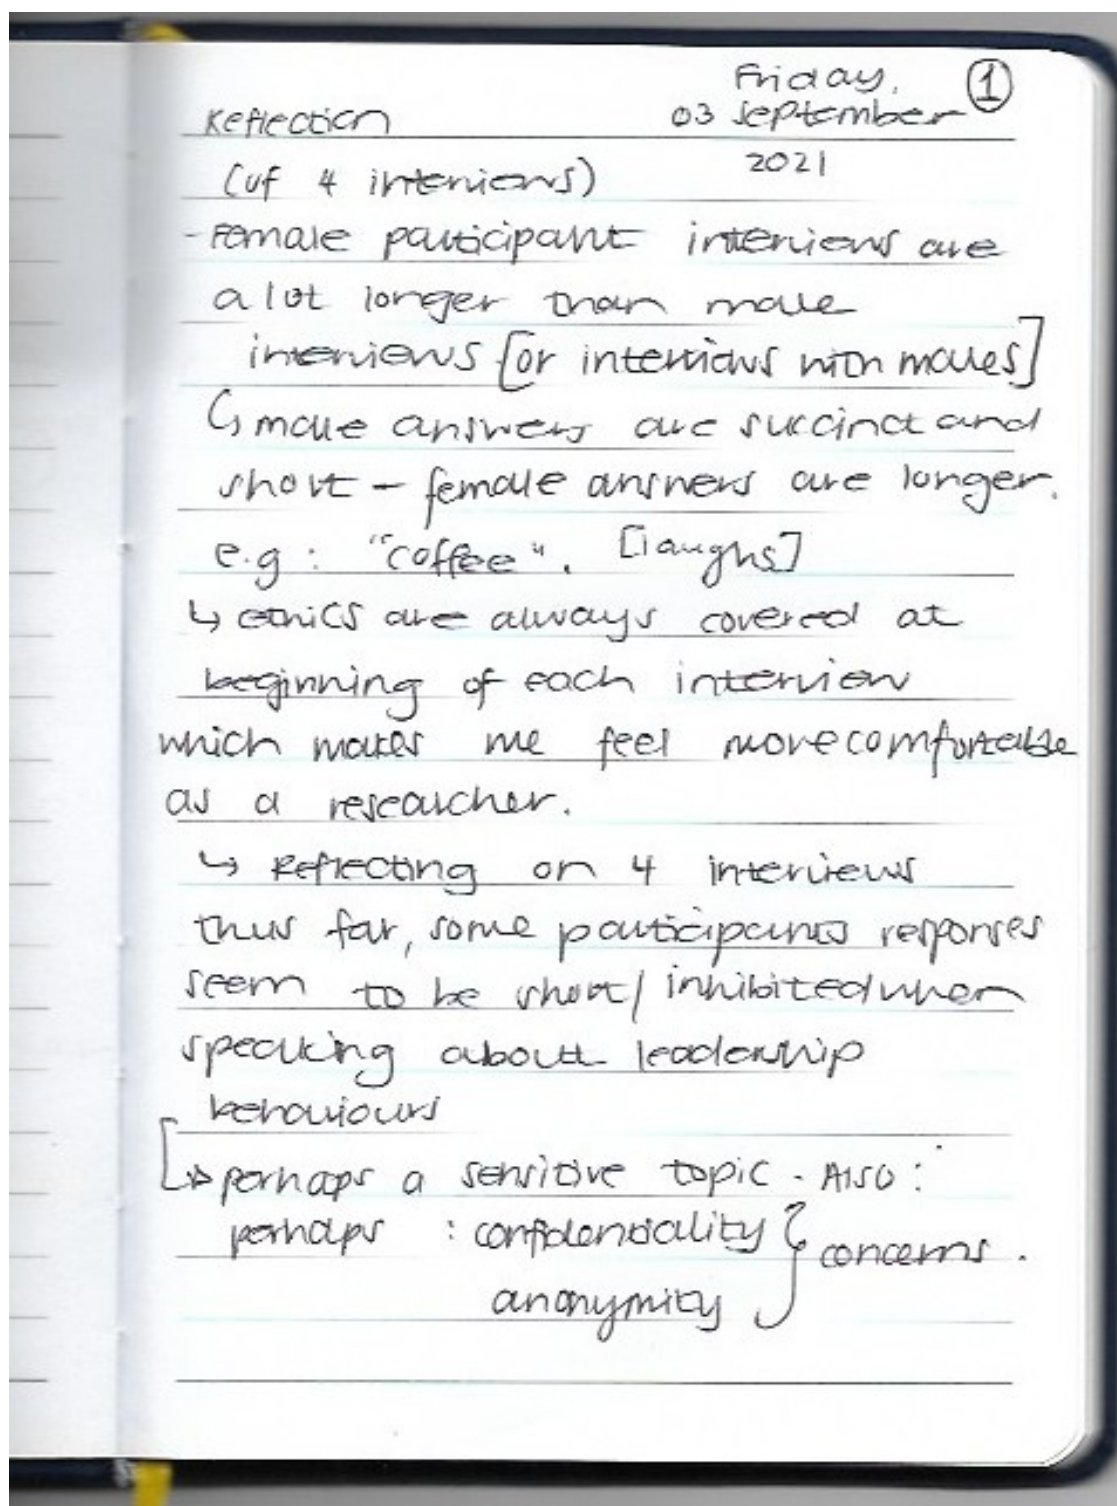 Friday, ①
Reflection 03 September
2021
(of 4 interviews)
- Female participant interviews are
a lot longer than male
interviews [or interviews with males]
↳ male answers are succinct and
short - female answers are longer.
e.g : "coffee". [laughs]
↳ ethics are always covered at
beginning of each interview
which makes me feel more comfortable
as a researcher.
↳ Reflecting on 4 interviews
thus far, some participants responses
seem to be short/inhibited when
speaking about leadership
behaviours
↳ perhaps a sensitive topic. Also :
perhaps : confidentiality } concerns.
anonymity